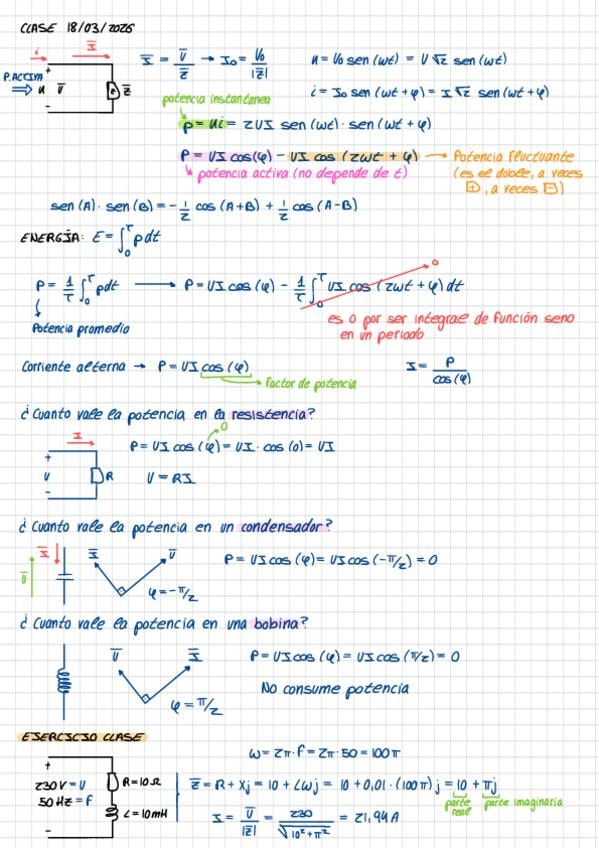 CLASE 18/03/2026
i I̅
P.ACTIVA ⇒ u U̅ Z̅ + -
I̅ = U̅/Z̅ → I₀ = U₀/|Z̅|
u = U₀ sen (ωt) = U √2 sen (ωt)
i = I₀ sen (ωt + φ) = I √2 sen (ωt + φ)
potencia instantanea
p = ui = 2UI sen (ωt) · sen (ωt + φ)
P = UI cos(φ) - UI cos (2ωt + φ) → Potencia fluctuante
(es el doble, a veces
⊕, a veces ⊖)
potencia activa (no depende de t)
sen (A) · sen (B) = - 1/2 cos (A+B) + 1/2 cos (A-B)
ENERGÍA: E = ∫₀ᵀ p dt
P = 1/T ∫₀ᵀ p dt → P = UI cos (φ) - 1/T ∫₀ᵀ UI cos (2ωt + φ) dt 0
Potencia promedio
es 0 por ser integral de función seno
en un periodo
Corriente alterna → P = UI cos (φ)
factor de potencia
I = P/cos(φ)
¿Cuanto vale la potencia en la resistencia?
I
+ U - R
P = UI cos (φ) = UI · cos (0) = UI
0
U = RI
¿Cuanto vale la potencia en un condensador?
U̅ I̅ I̅ U̅
φ = -π/2
P = UI cos (φ) = UI cos (-π/2) = 0
¿Cuanto vale la potencia en una bobina?
U̅ I̅
φ = π/2
P = UI cos (φ) = UI cos (π/2) = 0
No consume potencia
EJERCICIO CLASE
ω = 2π · f = 2π · 50 = 100π
+ 230 V = U
50 Hz = F -
R = 10Ω
L = 10mH
Z̅ = R + Xj = 10 + Lωj = 10 + 0,01 · (100π) j = 10 + πj
parte real parte imaginaria
I = U̅/|Z̅| = 230/√(10² + π²) = 21,94 A